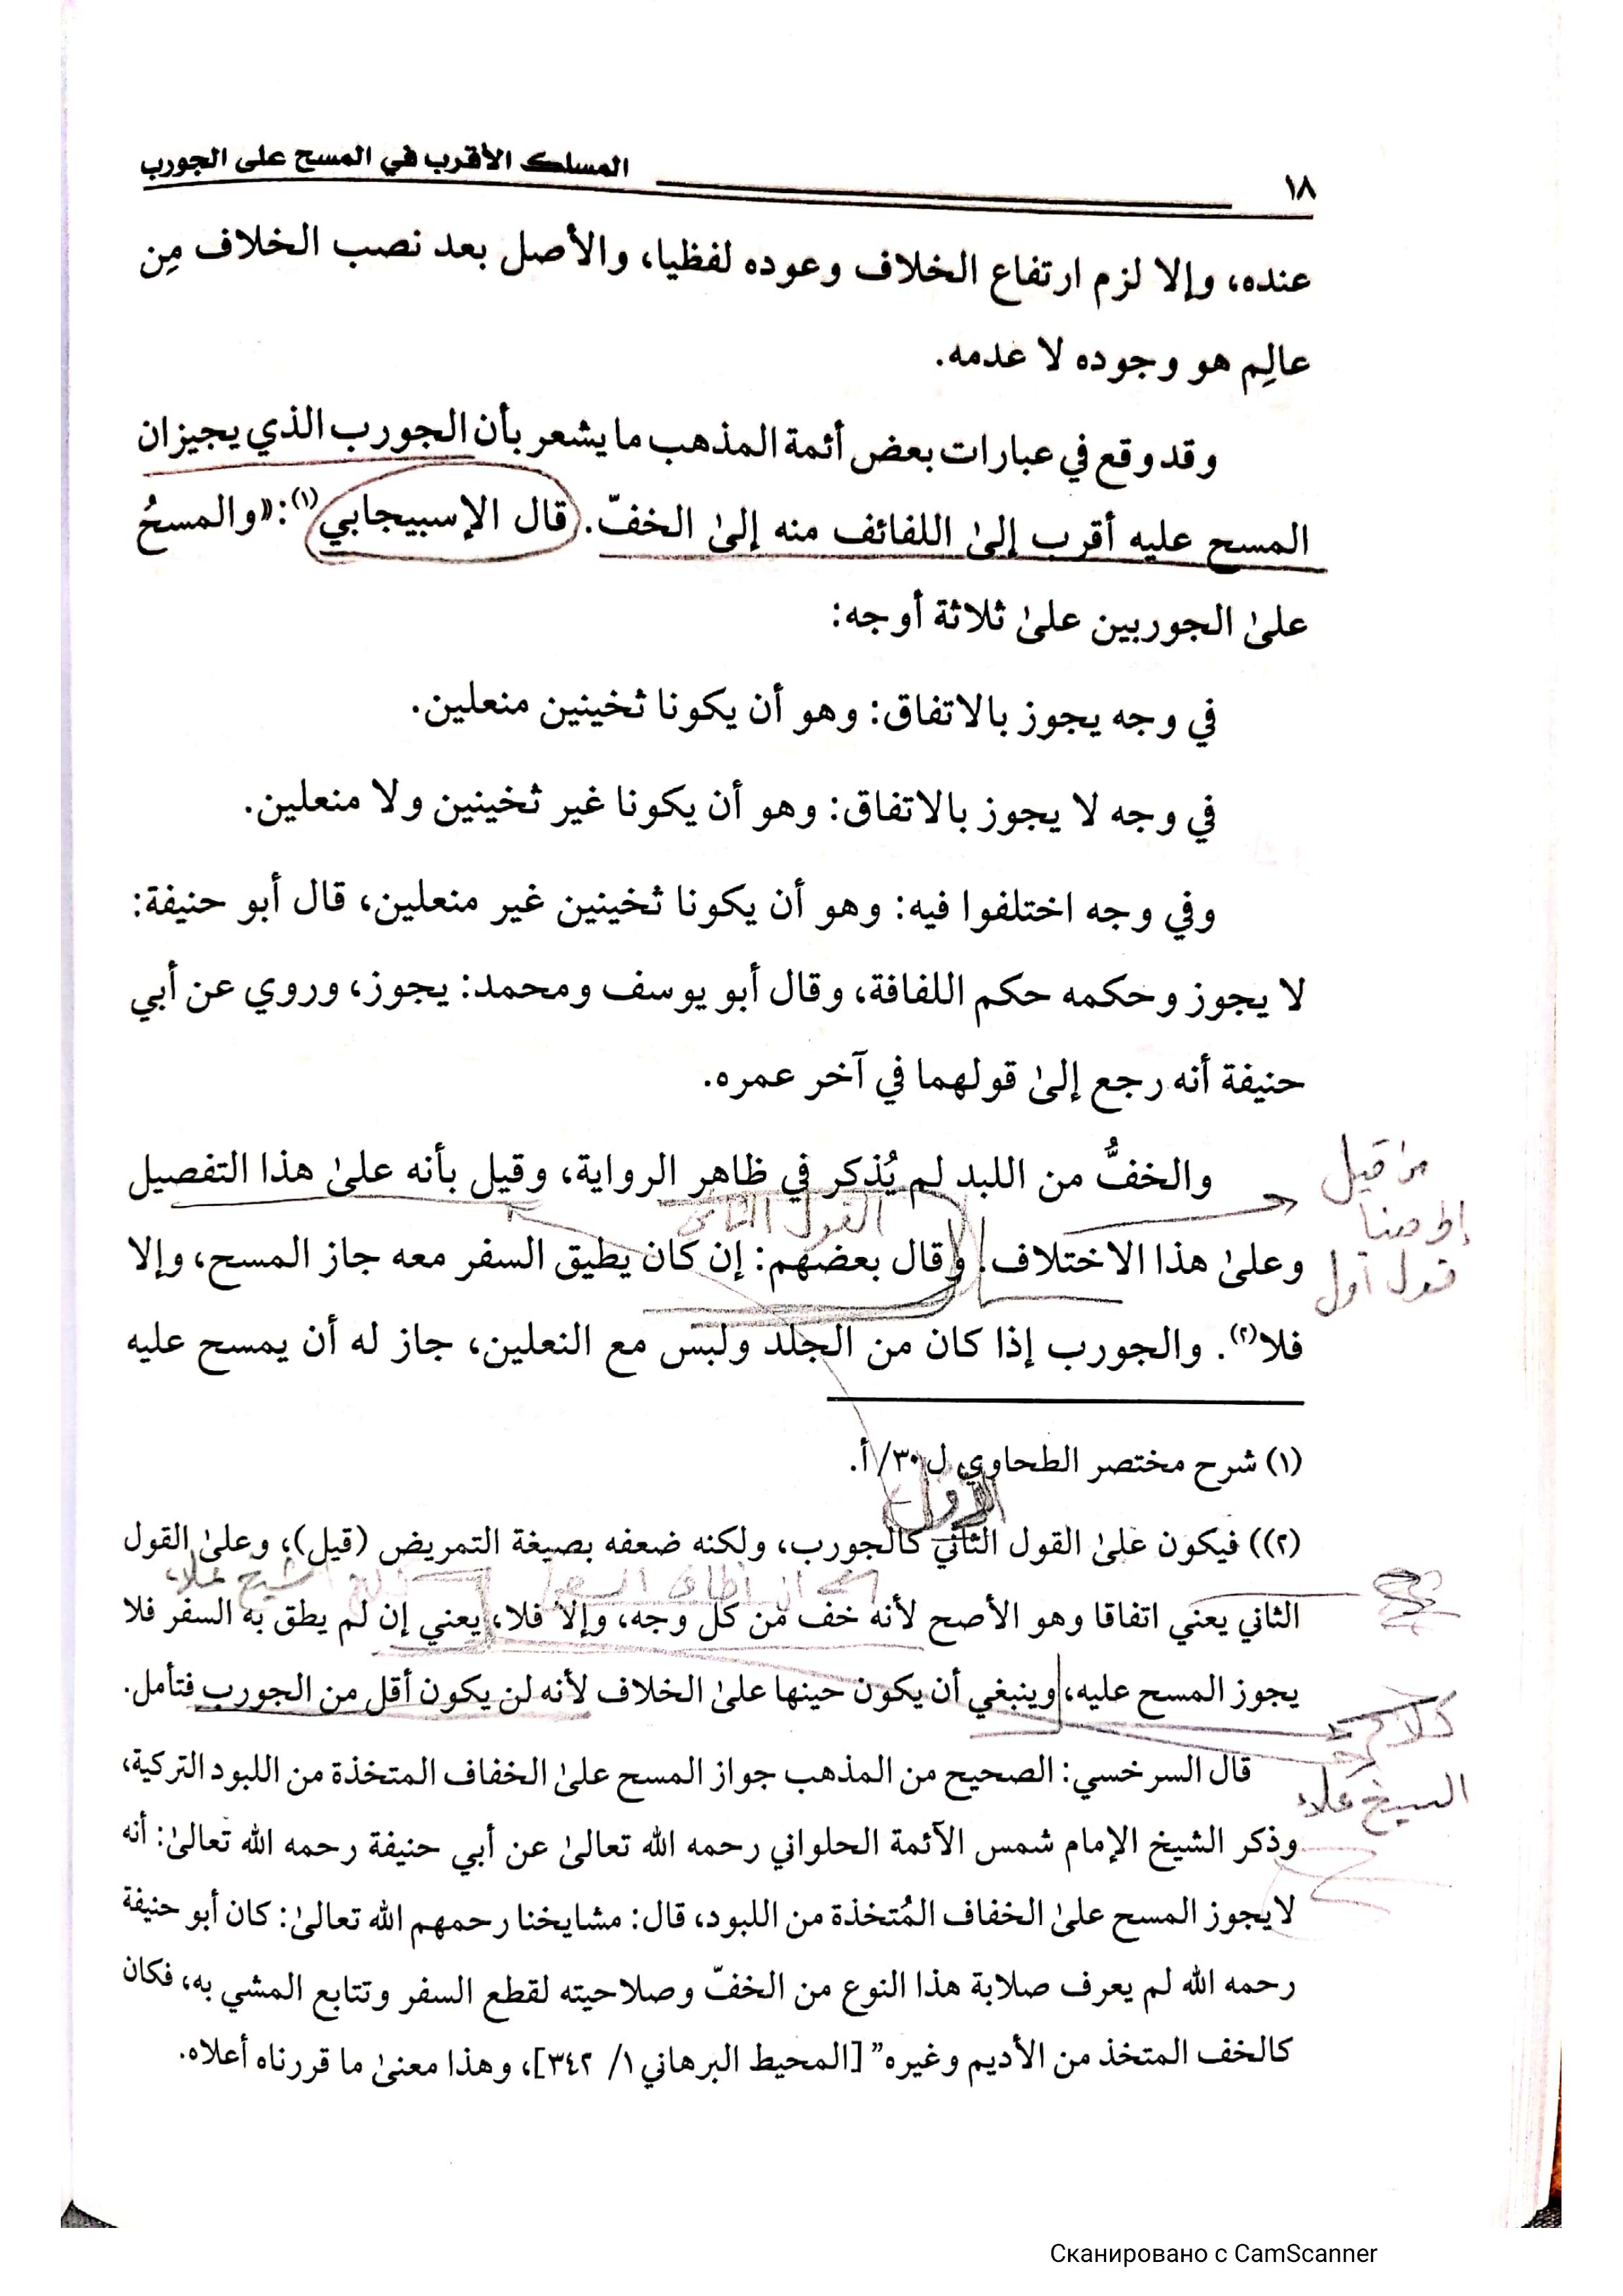 المسلك الأقرب في المسح على الجورب
١٨
عنده، وإلا لزم ارتفاع الخلاف وعوده لفظيا، والأصل بعد نصب الخلاف مِن
عالِم هو وجوده لا عدمه.
وقد وقع في عبارات بعض أئمة المذهب ما يشعر بأن الجورب الذي يجيزان
المسح عليه أقرب إلىٰ اللفائف منه إلىٰ الخفّ. قال الإسبيجابي(١): «والمسحُ
علىٰ الجوربين علىٰ ثلاثة أوجه:
في وجه يجوز بالاتفاق: وهو أن يكونا ثخينين منعلين.
في وجه لا يجوز بالاتفاق: وهو أن يكونا غير ثخينين ولا منعلين.
وفي وجه اختلفوا فيه: وهو أن يكونا ثخينين غير منعلين، قال أبو حنيفة:
لا يجوز وحكمه حكم اللفافة، وقال أبو يوسف ومحمد: يجوز، وروي عن أبي
حنيفة أنه رجع إلىٰ قولهما في آخر عمره.
والخفُّ من اللبد لم يُذكر في ظاهر الرواية، وقيل بأنه علىٰ هذا التفصيل
من قيل
إلى هنا
قول أول
القول الثاني
وعلىٰ هذا الاختلاف. وقال بعضهم: إن كان يطيق السفر معه جاز المسح، وإلا
فلا(٢). والجورب إذا كان من الجلد ولبس مع النعلين، جاز له أن يمسح عليه
(١) شرح مختصر الطحاوي ل ٣٠/ أ.
الأول
(٢)) فيكون علىٰ القول الثاني كالجورب، ولكنه ضعفه بصيغة التمريض (قيل)، وعلىٰ القول
الشيخ علاء
الثاني يعني اتفاقا وهو الأصح لأنه خف من كل وجه، وإلا فلا، يعني إن لم يطق به السفر فلا
يجوز المسح عليه، وينبغي أن يكون حينها علىٰ الخلاف لأنه لن يكون أقل من الجورب فتأمل.
كلام
الشيخ علاء
قال السرخسي: الصحيح من المذهب جواز المسح علىٰ الخفاف المتخذة من اللبود التركية،
وذكر الشيخ الإمام شمس الآئمة الحلواني رحمه الله تعالىٰ عن أبي حنيفة رحمه الله تعالىٰ: أنه
لايجوز المسح علىٰ الخفاف المُتخذة من اللبود، قال: مشايخنا رحمهم الله تعالىٰ: كان أبو حنيفة
رحمه الله لم يعرف صلابة هذا النوع من الخفّ وصلاحيته لقطع السفر وتتابع المشي به، فكان
كالخف المتخذ من الأديم وغيره” [المحيط البرهاني ١/ ٣٤٢]، وهذا معنىٰ ما قررناه أعلاه.
Сканировано с CamScanner